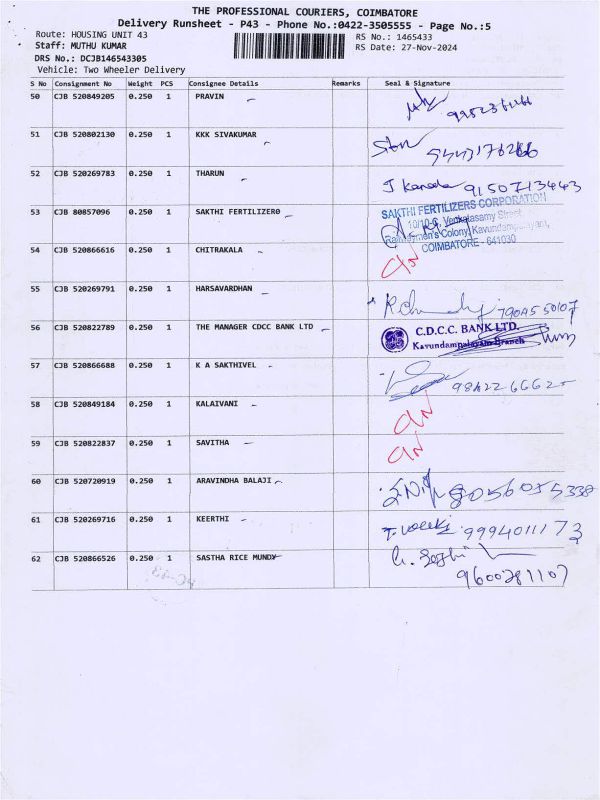 THE PROFESSIONAL COURIERS, COIMBATORE
Delivery Runsheet - P43 - Phone No.:0422-3505555 - Page No.:5
Route: HOUSING UNIT 43 RS No.: 1465433
Staff: MUTHU KUMAR RS Date: 27-Nov-2024
DRS No.: DCJB146543305
Vehicle: Two Wheeler Delivery
S No Consignment No Weight PCS Consignee Details Remarks Seal & Signature
50 CJB 520849205 0.250 1 PRAVIN
51 CJB 520802130 0.250 1 KKK SIVAKUMAR
52 CJB 520269783 0.250 1 THARUN 9150713443
53 CJB 80857096 0.250 1 SAKTHI FERTILIZERO
SAKTHI FERTILIZERS CORPORATION
Venkatasamy Street
Colony, Kavundampalayam,
COIMBATORE - 641030
54 CJB 520866616 0.250 1 CHITRAKALA
55 CJB 520269791 0.250 1 HARSAVARDHAN
56 CJB 520822789 0.250 1 THE MANAGER CDCC BANK LTD
C.D.C.C. BANK LTD.
Kavundampalayam Branch
57 CJB 520866688 0.250 1 K A SAKTHIVEL
58 CJB 520849184 0.250 1 KALAIVANI
59 CJB 520822837 0.250 1 SAVITHA
60 CJB 520720919 0.250 1 ARAVINDHA BALAJI 8056055338
61 CJB 520269716 0.250 1 KEERTHI 9994011173
62 CJB 520866526 0.250 1 SASTHA RICE MUNDY 9600281107